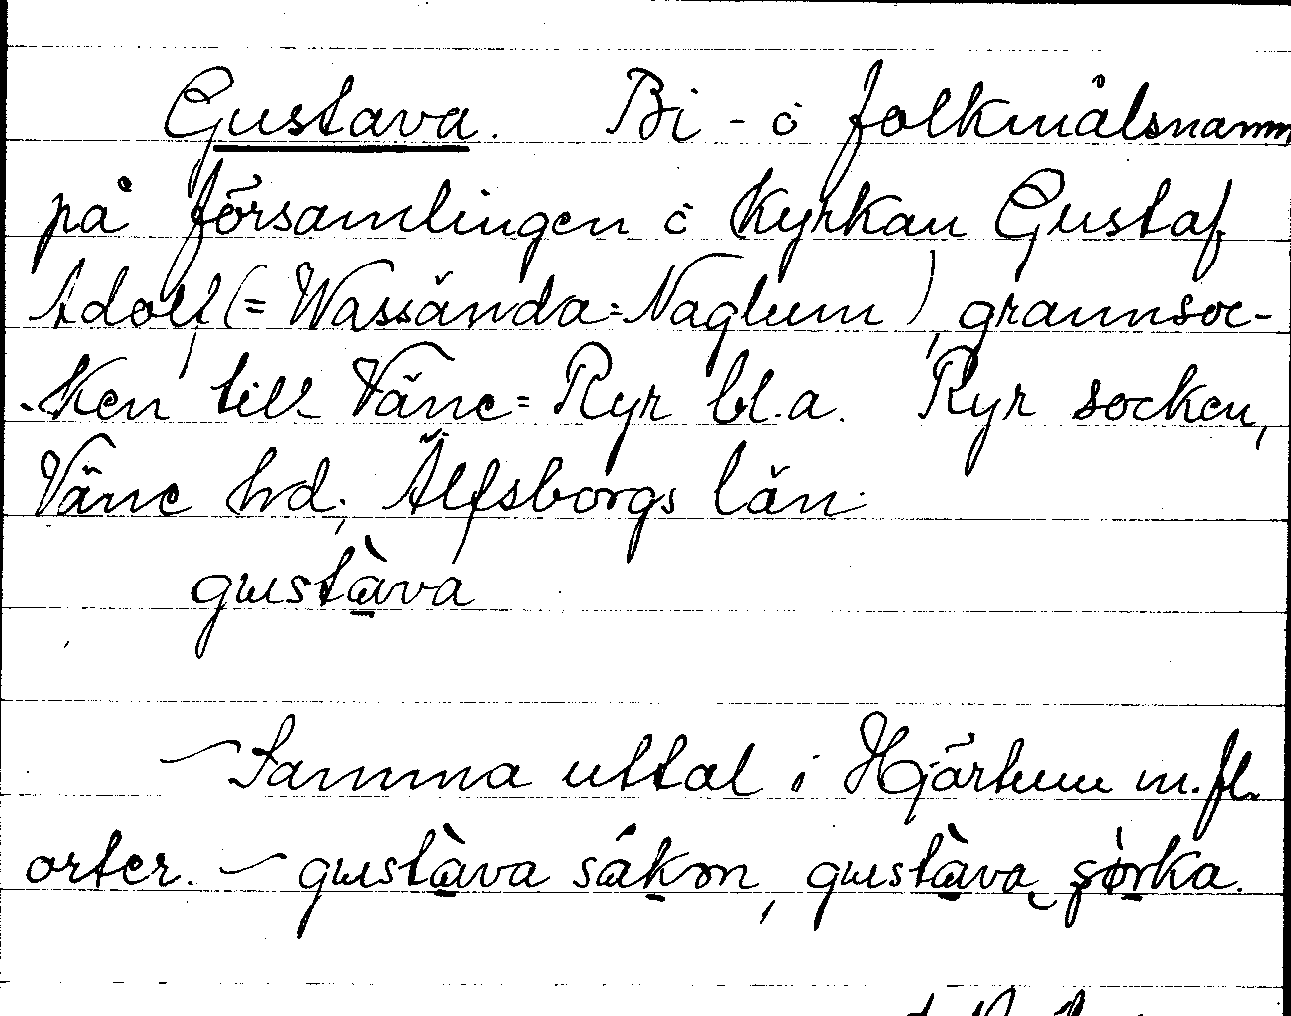 Gustava. Bi- o folkmålsnamn
på församlingen o kyrkan Gustaf
Adolf (= Wassända=Naglum), grannsoc-
-ken till Väne=Ryr bl.a. Ryr socken,
Väne hd; Älfsborgs län.
gustàva
– Samma uttal i Hjärtum m.fl.
orter. – gustàva såkɷn, gustàva